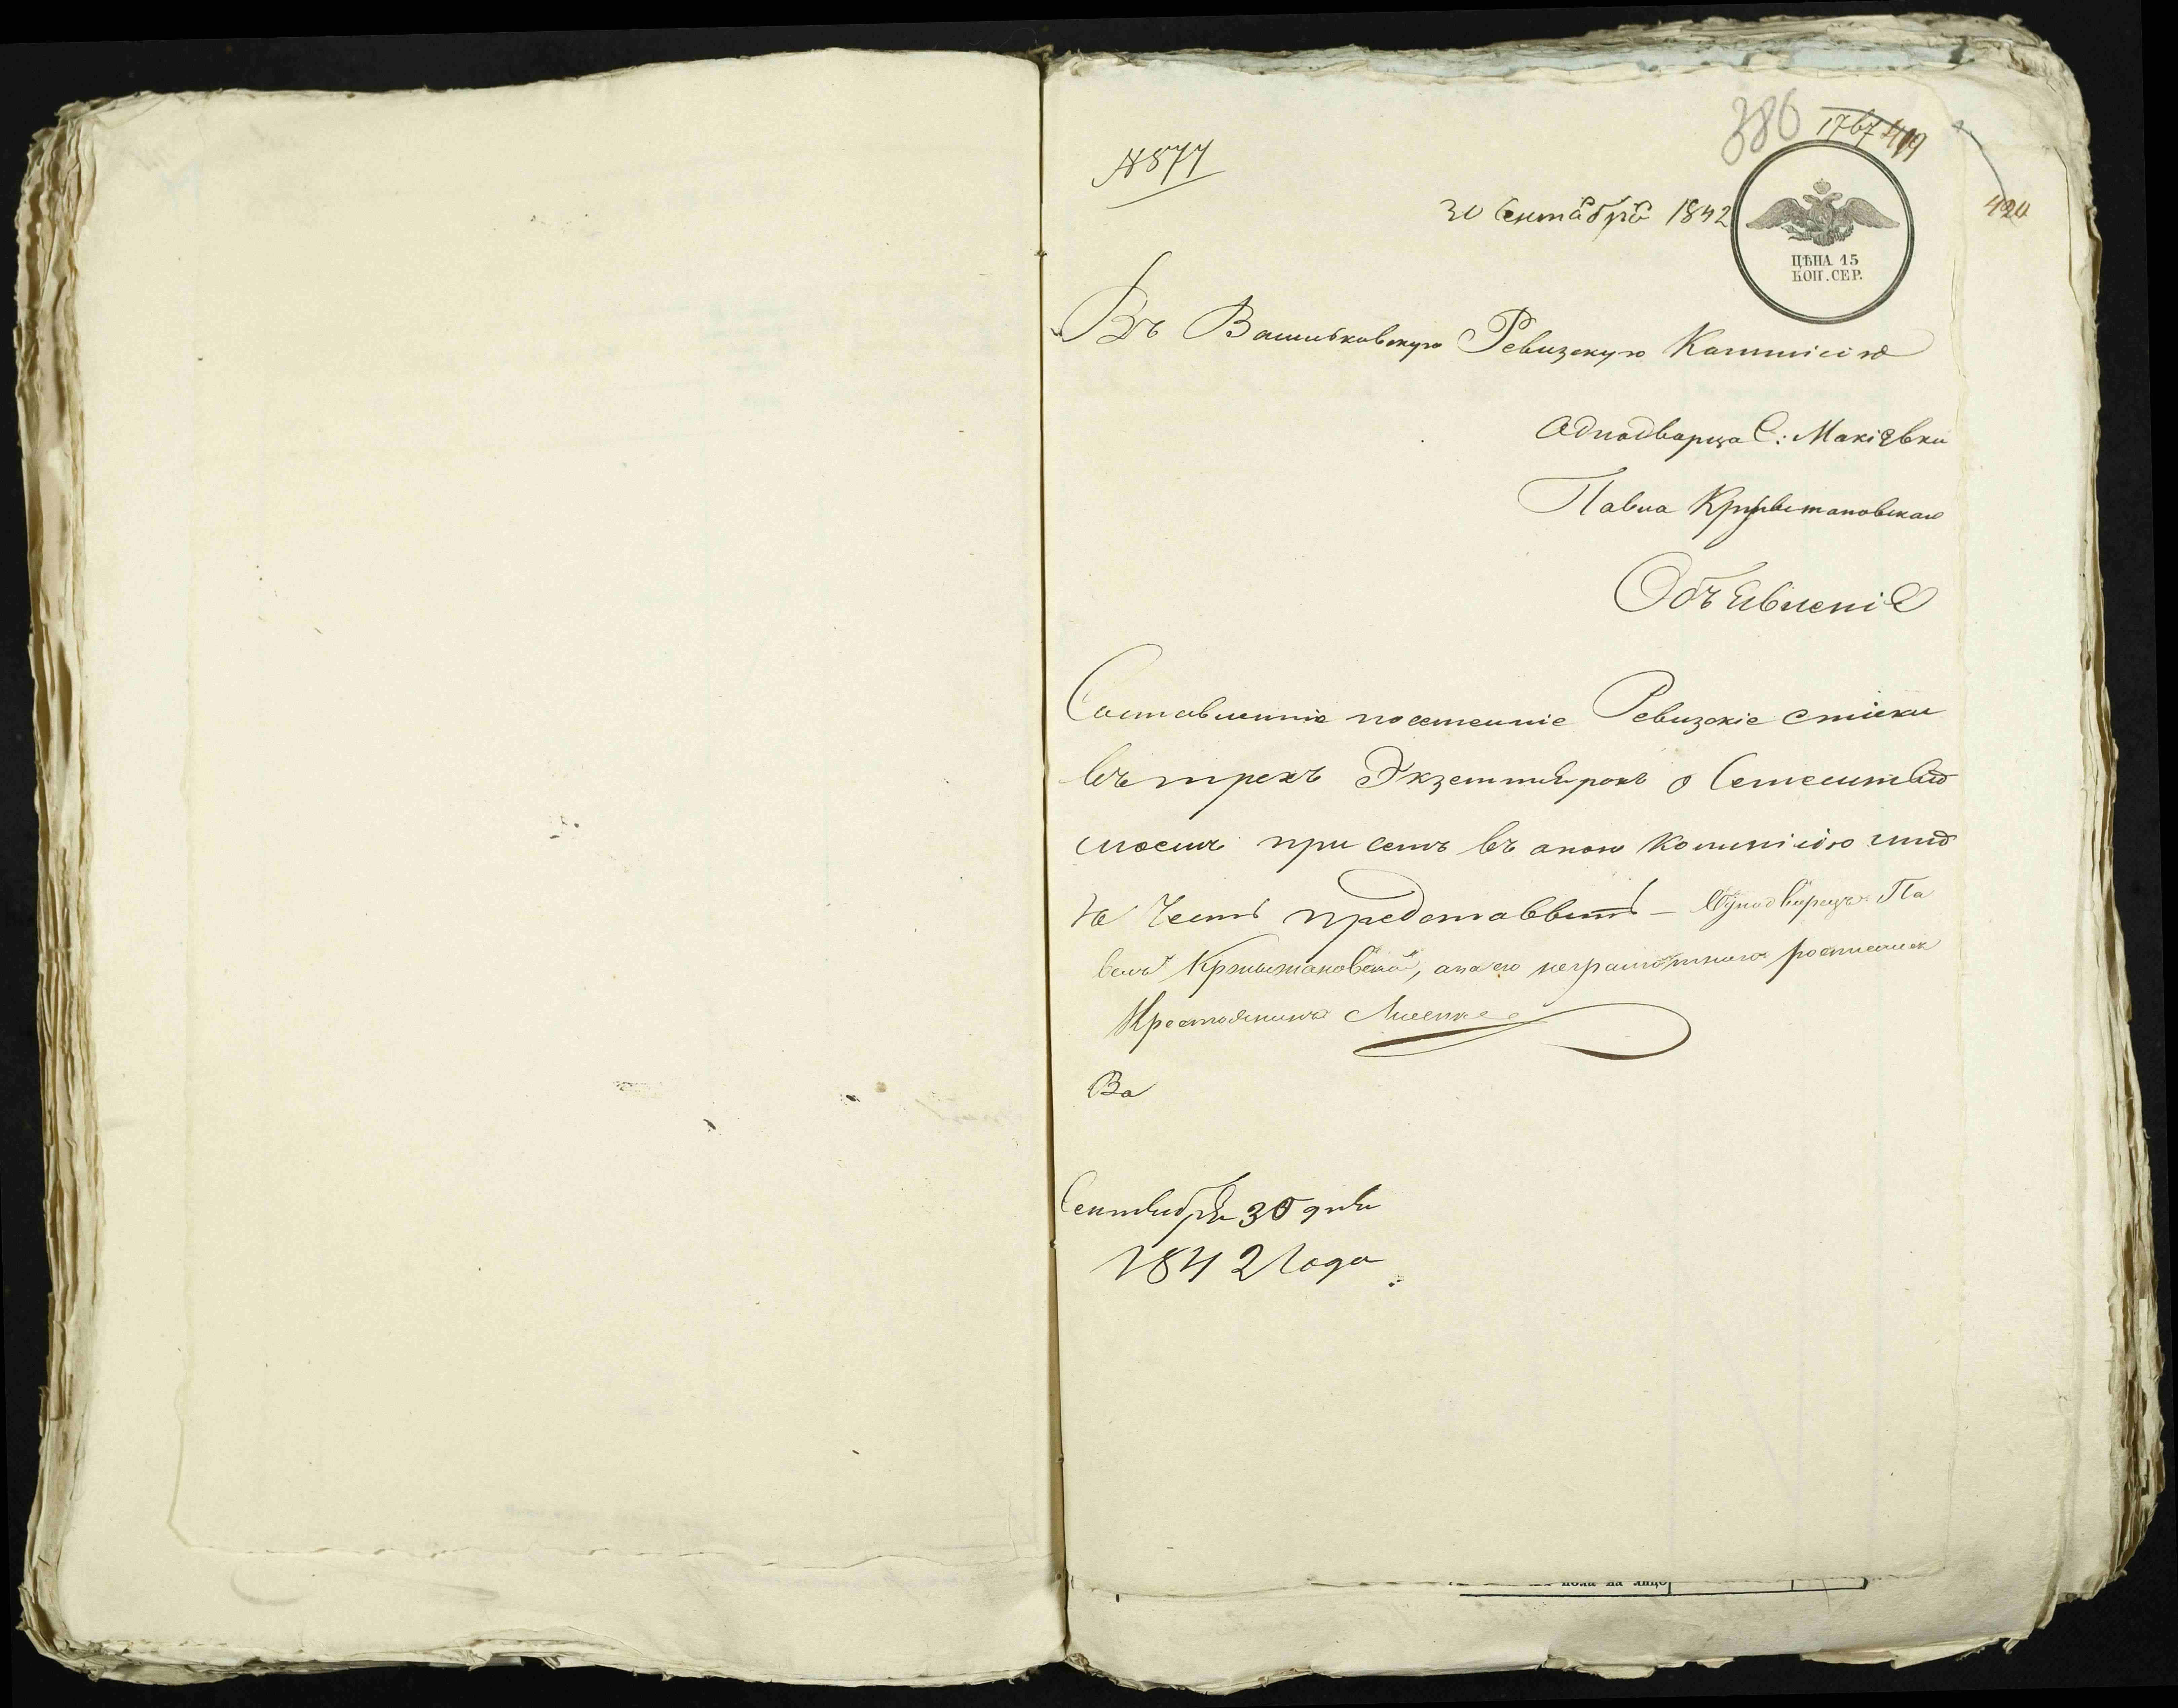 386 1767 419
№ 877
30 Сентября 1842
420
ЦѢНА 15
КОП. СЕР.
Въ Васильковскую Ревизскую Коммисію
Однодворца С: Макіевки
Павла Кржижановскаго
Объявленіе
Составленніе посемейніе Ревизскіе списки
въ трехъ Экземплярахъ о Семействѣ
моемъ при семъ въ оною Коммисію имѣ
ю Честь представить — Однодворецъ Па
велъ Кржижановскій, а за его неграмотнаго росписался
Крестоянинъ
Ва
Сентября 30 дня
1842 Года
пола на лицо